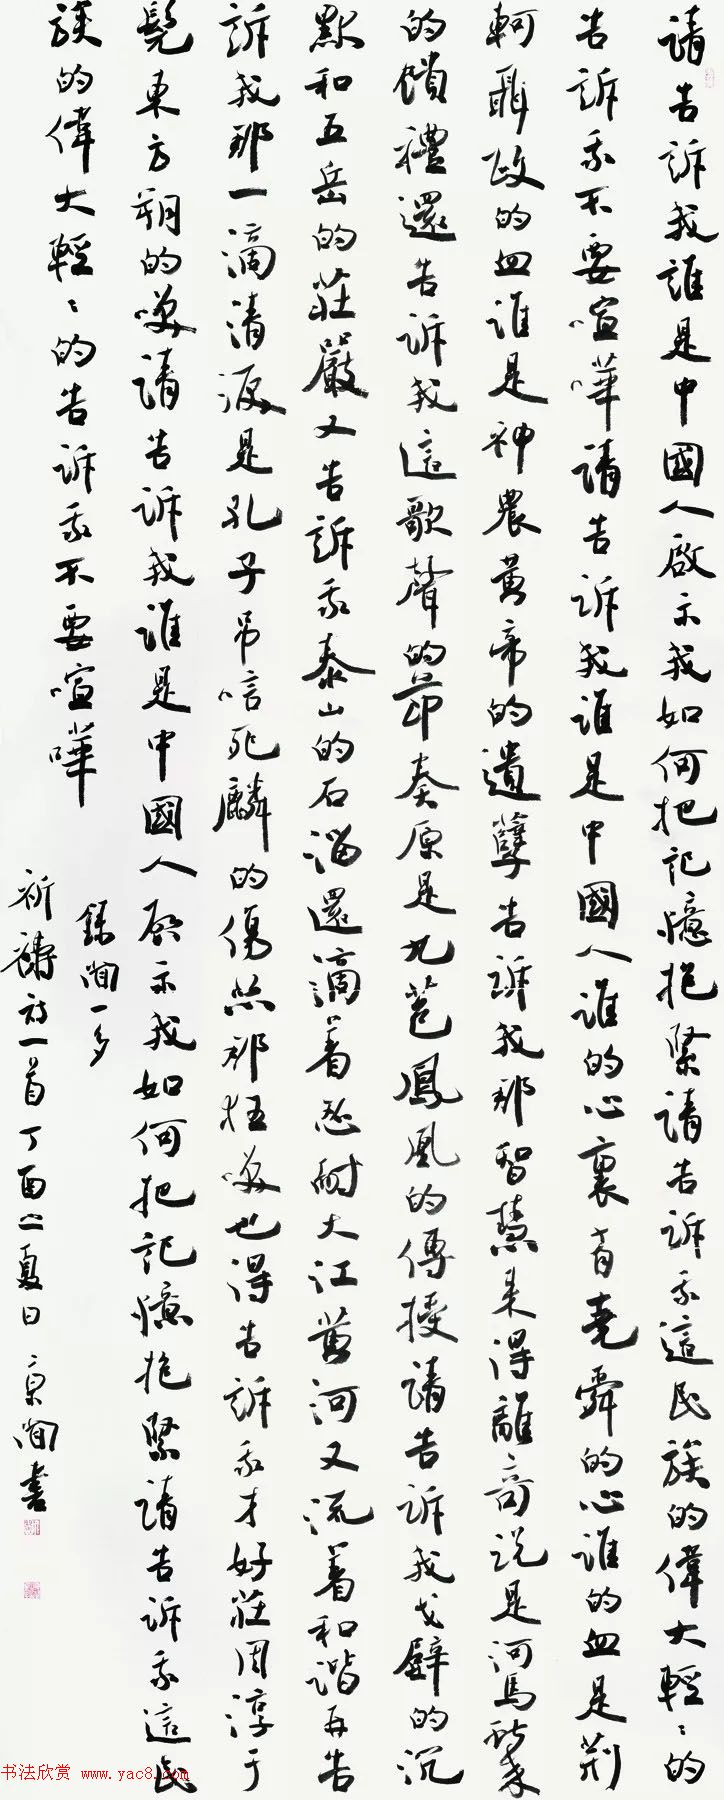 請告訴我誰是中國人啟示我如何把記憶抱緊請告訴我這民族的偉大輕〻的
告訴我不要喧嘩請告訴我誰是中國人誰的心裏有堯舜的心誰的血是荆
軻聶政的血誰是神農黃帝的遺孽告訴我那智慧來得離奇説是河馬獻來
的饋禮還告訴我這歌聲的節奏原是九苞鳳凰的傳授請告訴我戈壁的沉
默和五岳的莊嚴又告訴我泰山的石溜還滴着忍耐大江黃河又流着和諧再告
訴我那一滴清淚是孔子吊唁死麟的傷悲那狂笑也得告訴我才好莊周淳于
髡東方朔的笑請告訴我誰是中國人啟示我如何把記憶抱緊請告訴我這民
族的偉大輕〻的告訴我不要喧嘩
錄聞一多
祈禱詩一首丁酉之夏日京聞書
书法欣赏 www.yac8.com